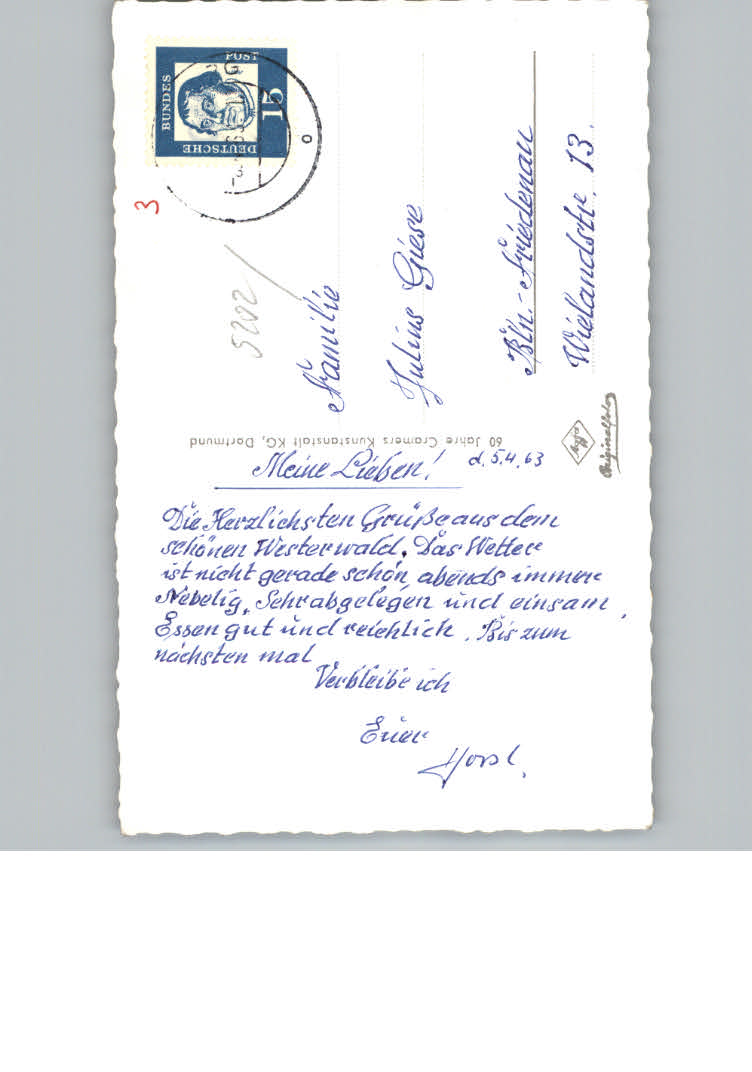 DEUTSCHE
BUNDES
POST
15
3
5202
Familie
Julius Giese
Bln.-Friedenau
Wielandstr. 13.
60 Jahre Cramers Kunstanstalt KG, Dortmund
Agfa
Originalfoto
d. 5.4.63
Meine Lieben!
Die Herzlichsten Grüße aus dem
schönen Westerwald. Das Wetter
ist nicht gerade schön, abends immer
Nebelig, Sehr abgelegen und einsam,
Essen gut und reichlich. Bis zum
nächsten mal
Verbleibe ich
Euer
Horst.